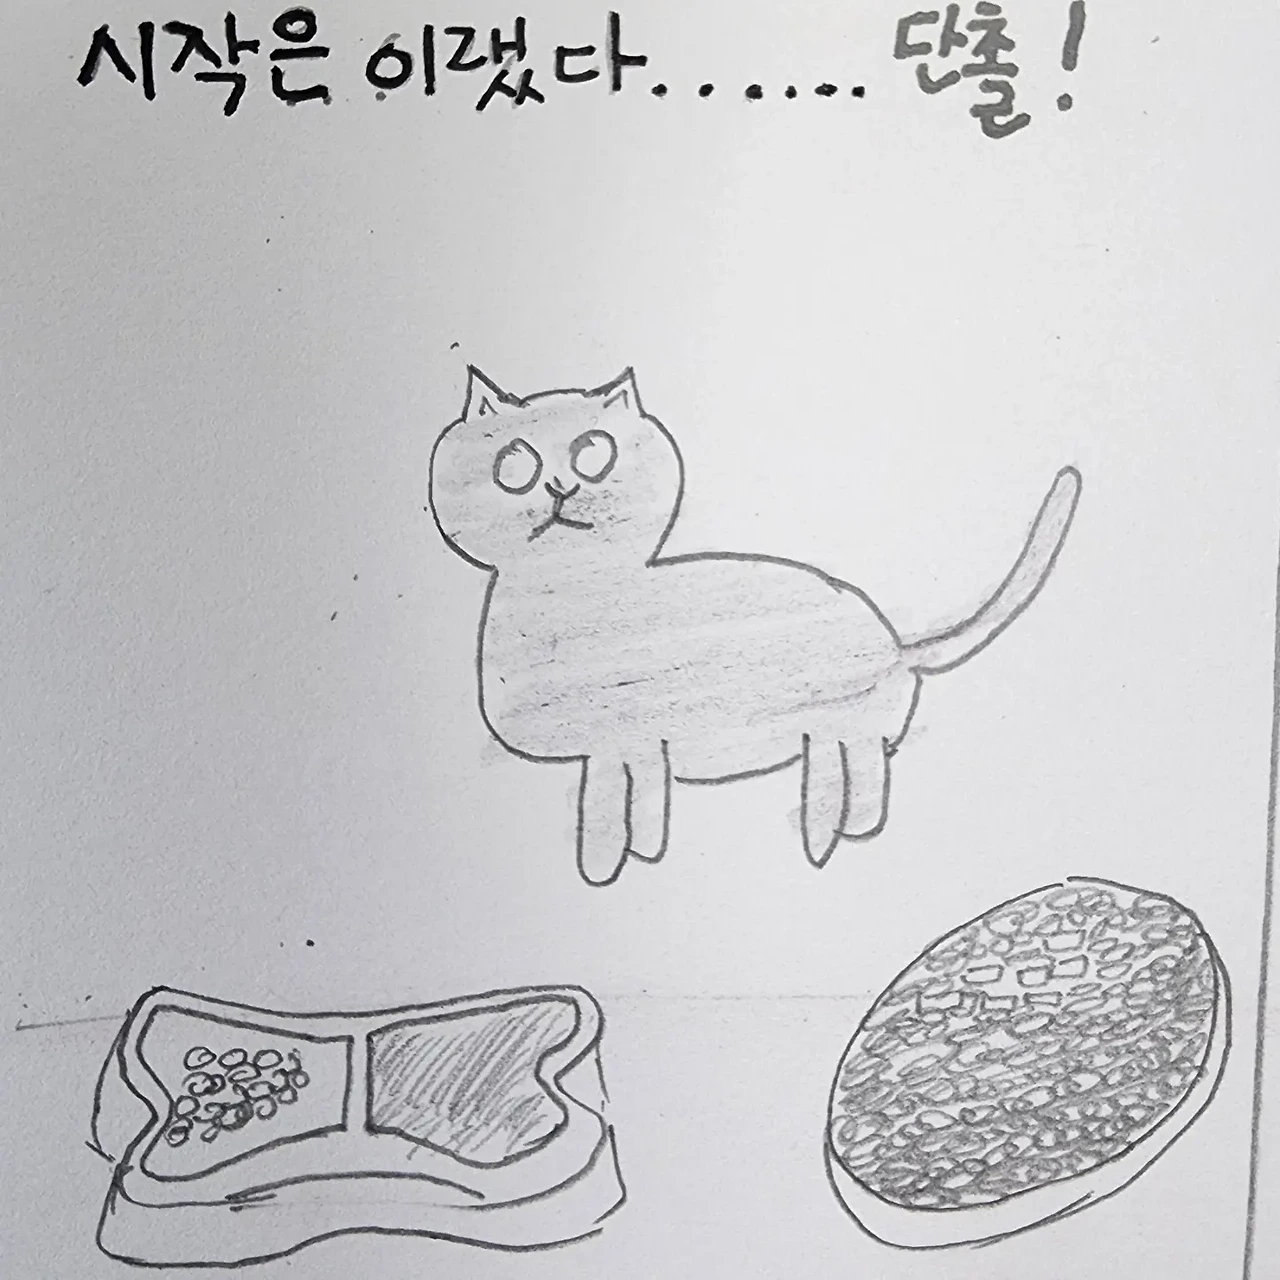 시작은 이랬다....... 단촐!